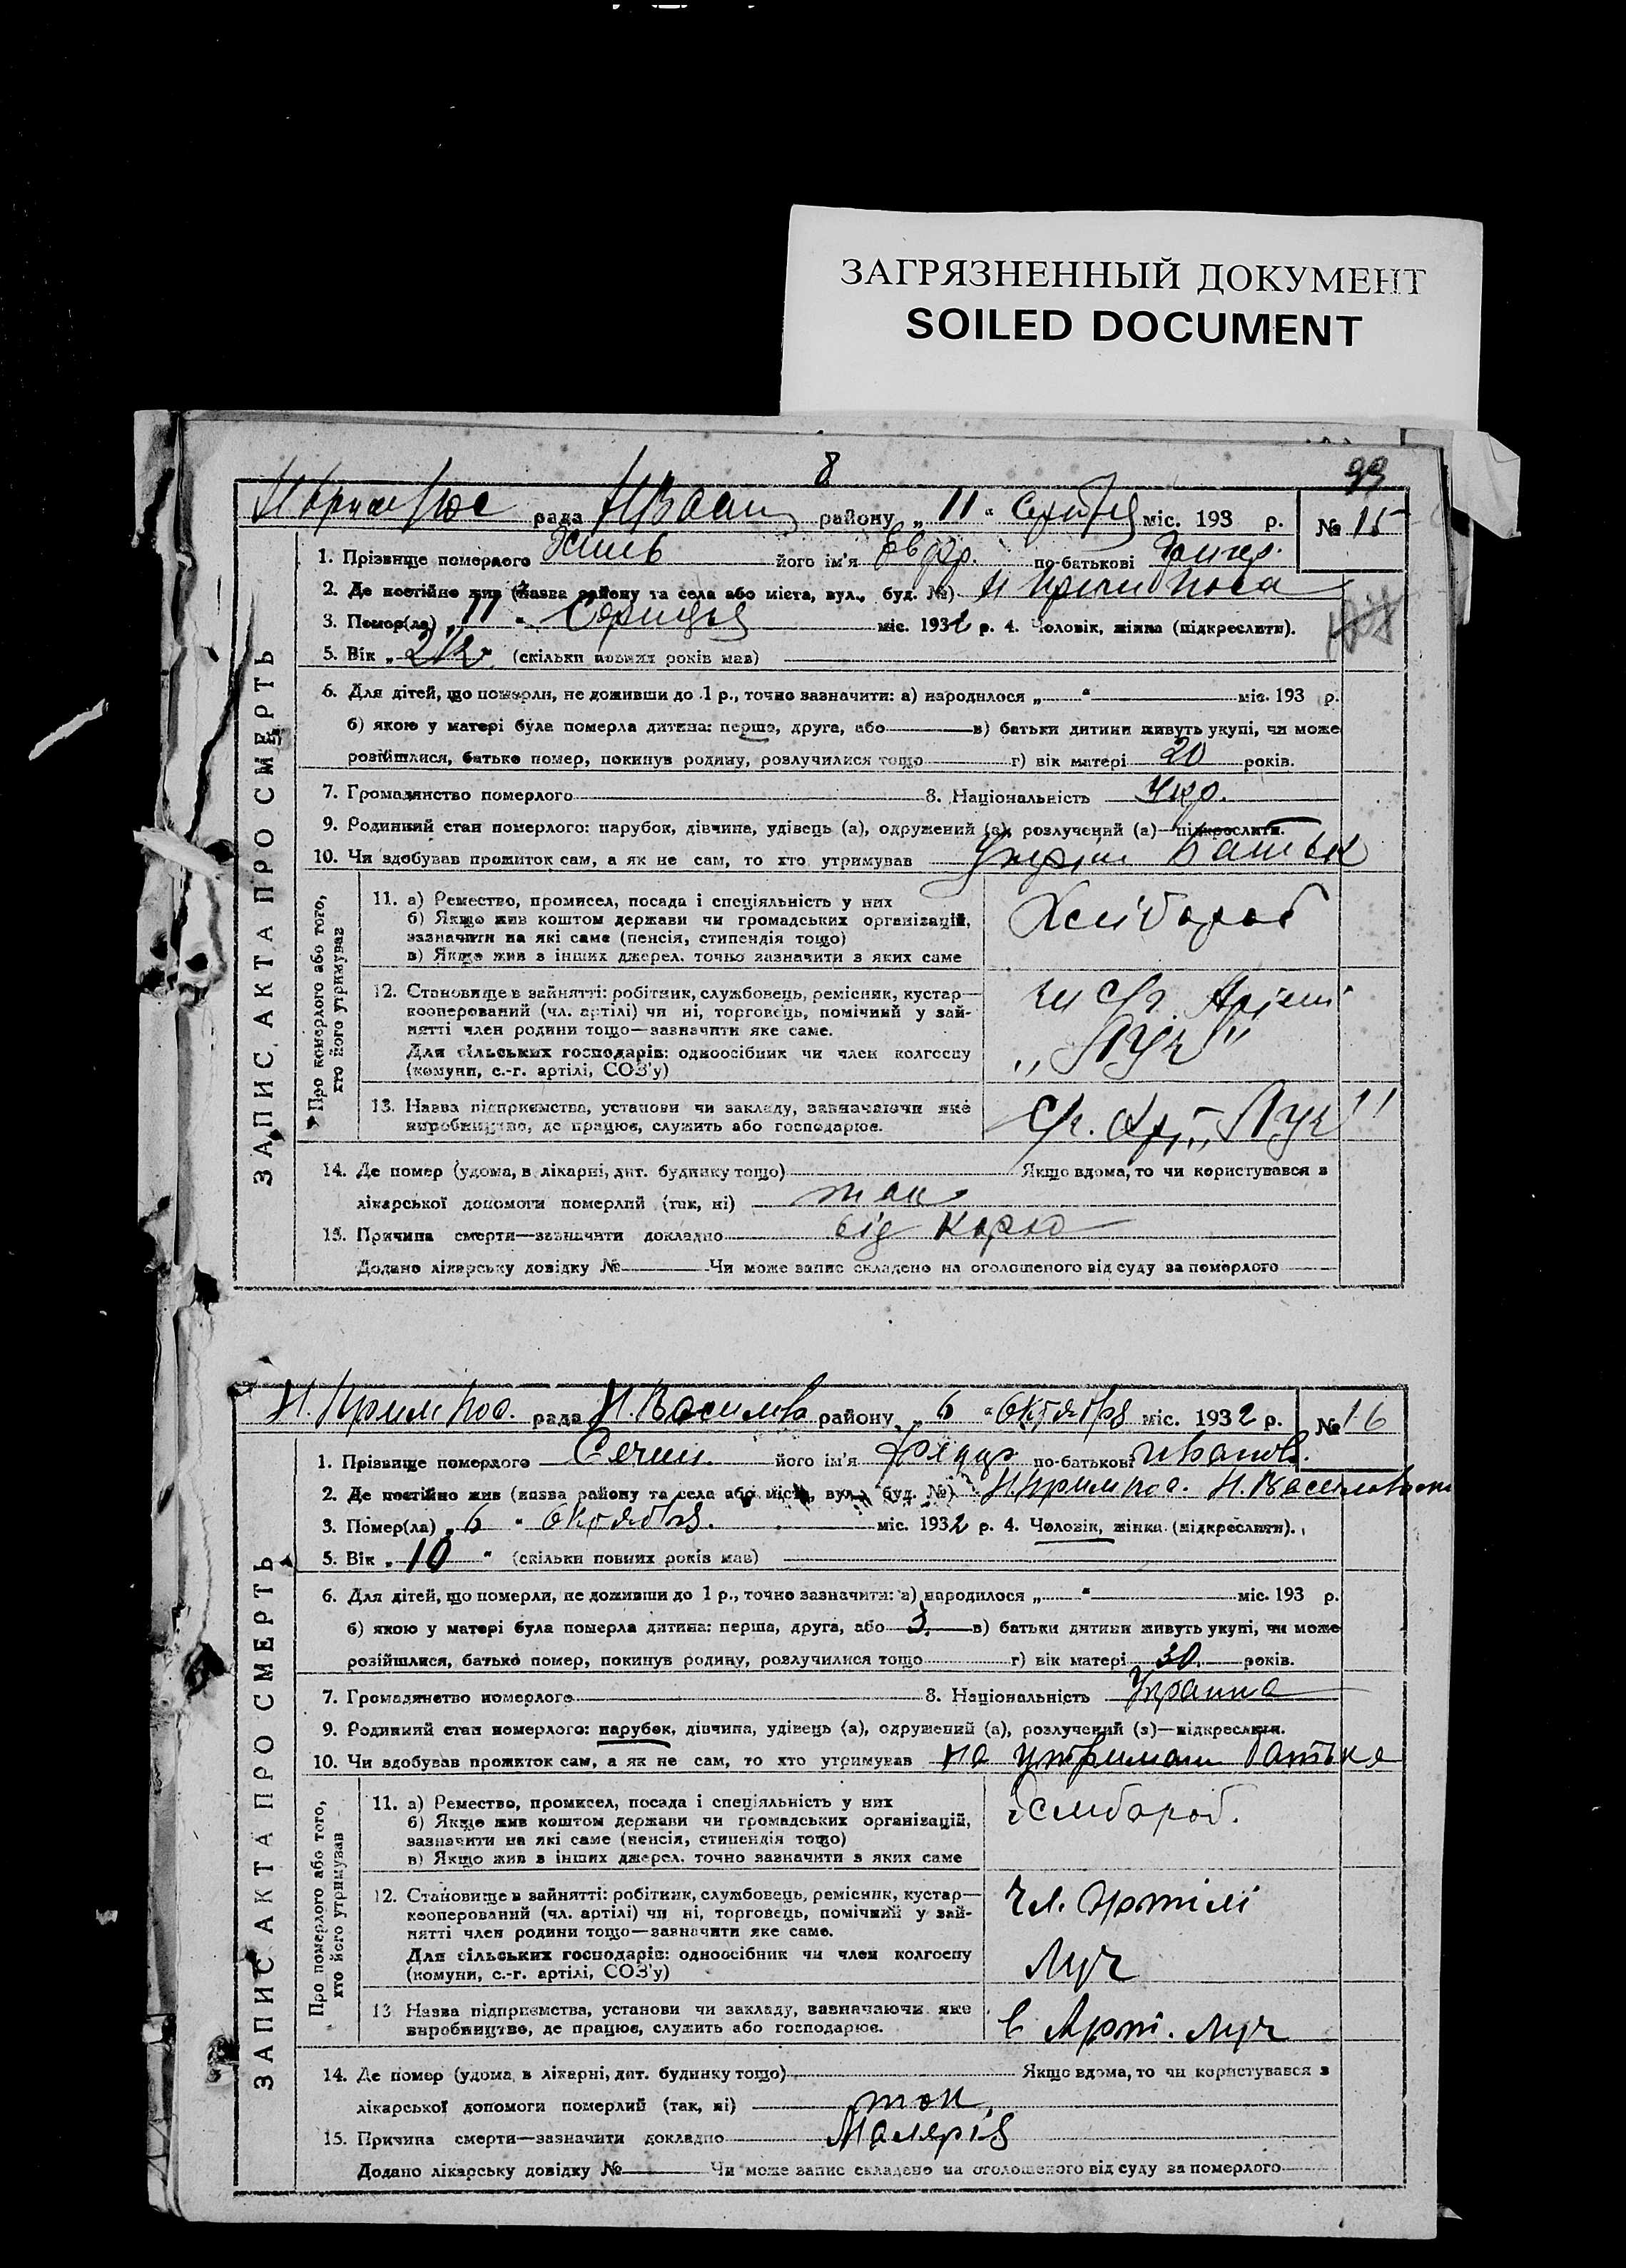 ЗАГРЯЗНЕННЫЙ ДОКУМЕНТ
SOILED DOCUMENT
8
99
рада району „ 11 “ міс. 193 р. № 15
1. Прізвище померлого його ім'я по-батькові
2. Де постійно жив (назва району та села або міста, вул., буд. №)
3. Помер(ла) „ 11 “ міс. 1932 р. 4. Чоловік, жінка (підкреслити).
5. Вік „ “ (скільки повних років мав)
6. Для дітей, що померли, не доживши до 1 р., точно зазначити: а) народилося „ “ міс. 193 р.
б) якою у матері була померла дитина: перша, друга, або в) батьки дитини живуть укупі, чи може
розійшлися, батько помер, покинув родину, розлучилися тощо г) вік матері 20 років.
7. Громадянство померлого 8. Національність Укр.
9. Родинний стан померлого: парубок, дівчина, удівець (а), одружений (а), розлучений (а)—підкреслити.
10. Чи здобував прожиток сам, а як не сам, то хто утримував
ЗАПИС АКТА ПРО СМЕРТЬ
Про померлого або того,
хто його утримував
11. а) Ремество, промисел, посада і спеціяльність у них
б) Якщо жив коштом держави чи громадських організацій,
зазначити на які саме (пенсія, стипендія тощо)
в) Якщо жив з інших джерел. точно зазначити з яких саме
Хлібороб
12. Становище в зайнятті: робітник, службовець, ремісник, кустар—
кооперований (чл. артілі) чи ні, торговець, помічний у зай-
нятті член родини тощо—зазначити яке саме.
Для сільських господарів: одноосібник чи член колгоспу
(комуни, с.-г. артілі, СОЗ'у)
„Луч“
13. Назва підприємства, установи чи закладу, зазначаючи яке
виробництво, де працює, служить або господарює.
С/г. Арт. „Луч“
14. Де помер (удома, в лікарні, дит. будинку тощо) Якщо вдома, то чи користувався з
лікарської допомоги померлий (так, ні) так
15. Причина смерті—зазначити докладно від
Додано лікарську довідку № Чи може запис складено на оголошеного від суду за померлого
рада району „ 6 “ октября міс. 1932 р. № 16
1. Прізвище померлого його ім'я по-батькові Иванов.
2. Де постійно жив (назва району та села або міста, вул., буд. №)
3. Помер(ла) „ 6 “ октября. міс. 1932 р. 4. Чоловік, жінка (підкреслити).
5. Вік „ 10 “ (скільки повних років мав)
6. Для дітей, що померли, не доживши до 1 р., точно зазначити: а) народилося „ “ міс. 193 р.
б) якою у матері була померла дитина: перша, друга, або 3. в) батьки дитини живуть укупі, чи може
розійшлися, батько помер, покинув родину, розлучилися тощо г) вік матері 30. років.
7. Громадянство померлого 8. Національність
9. Родинний стан померлого: парубок, дівчина, удівець (а), одружений (а), розлучений (а)—підкреслити.
10. Чи здобував прожиток сам, а як не сам, то хто утримував на утриман батька
ЗАПИС АКТА ПРО СМЕРТЬ
Про померлого або того,
хто його утримував
11. а) Ремество, промисел, посада і спеціяльність у них
б) Якщо жив коштом держави чи громадських організацій,
зазначити на які саме (пенсія, стипендія тощо)
в) Якщо жив з інших джерел. точно зазначити з яких саме
Хлібороб.
12. Становище в зайнятті: робітник, службовець, ремісник, кустар—
кооперований (чл. артілі) чи ні, торговець, помічний у зай-
нятті член родини тощо—зазначити яке саме.
Для сільських господарів: одноосібник чи член колгоспу
(комуни, с.-г. артілі, СОЗ'у)
чл. Артілі
Луч
13. Назва підприємства, установи чи закладу, зазначаючи яке
виробництво, де працює, служить або господарює.
в Арті. Луч
14. Де помер (удома, в лікарні, дит. будинку тощо) Якщо вдома, то чи користувався з
лікарської допомоги померлий (так, ні) так,
15. Причина смерті—зазначити докладно Малерія
Додано лікарську довідку № Чи може запис складено на оголошеного від суду за померлого